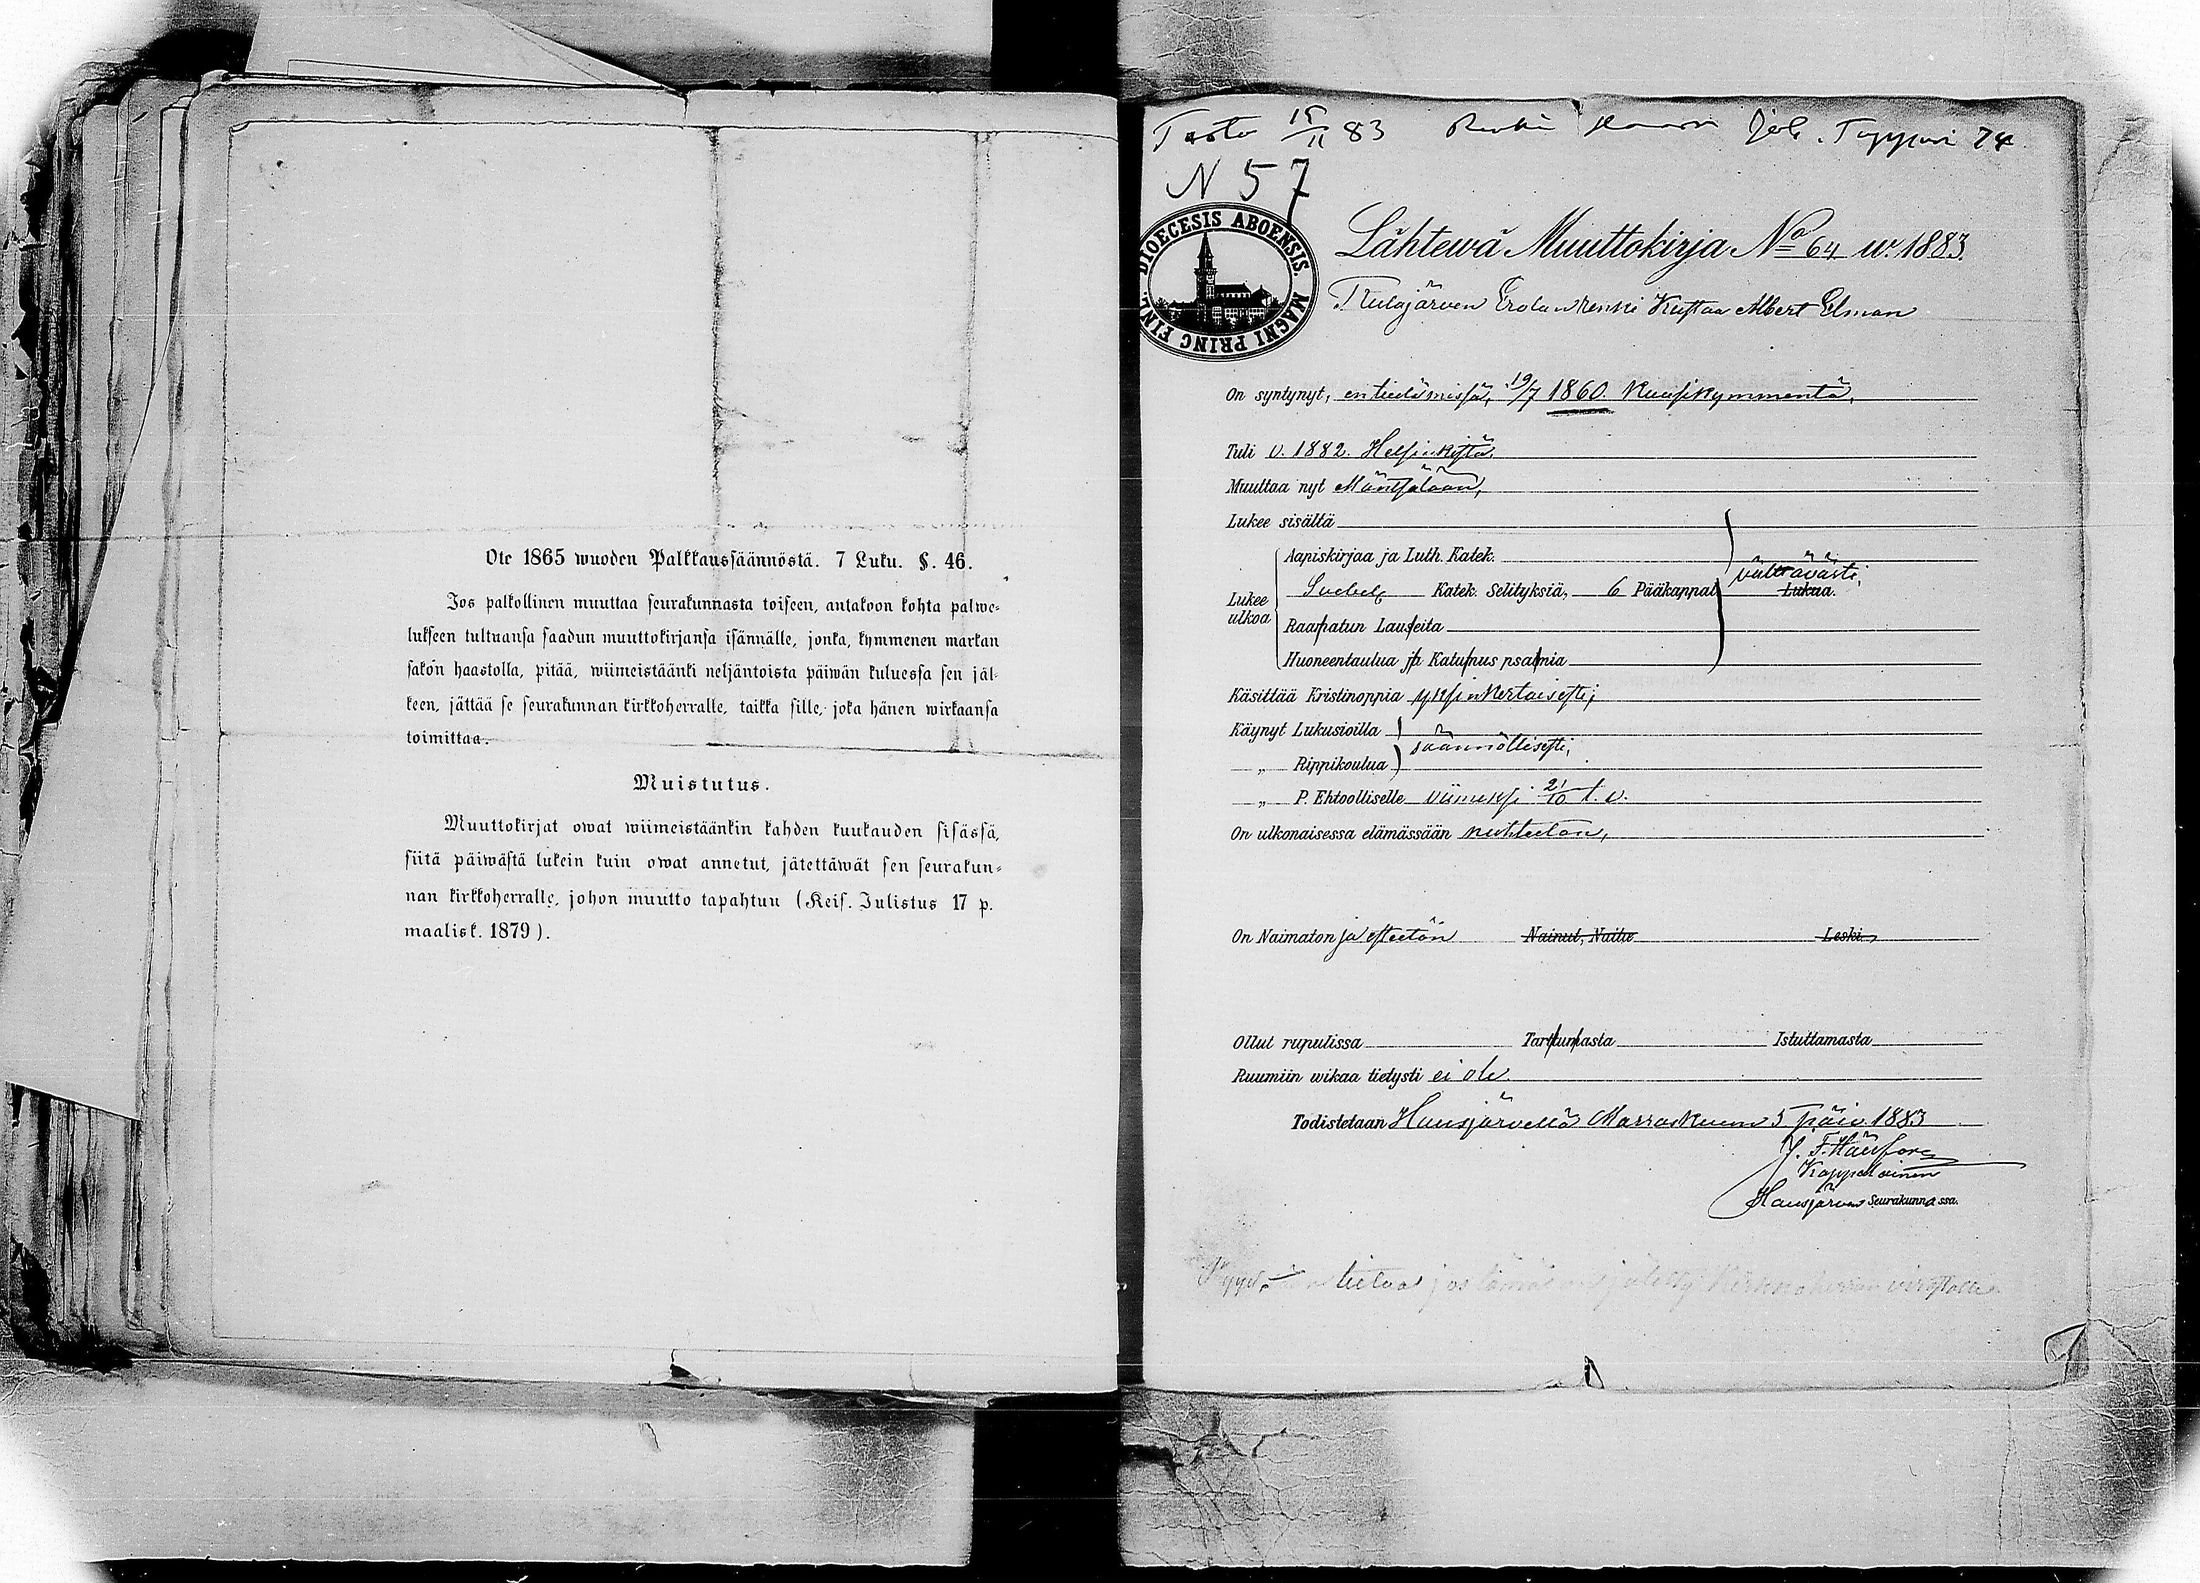 Ote 1865 wuoden Palkkaussäännöstä. 7 Luku. §. 46.
Jos palkollinen muuttaa seurakunnasta toiseen, antakoon kohta palwe-
lukseen tultuansa saadun muuttokirjansa isännälle, jonka, kymmenen markan
sakon haastolla, pitää, wiimeistäänki neljäntoista päiwän kuluessa sen jäl-
keen, jättää se seurakunnan kirkkoherralle, taikka sille, joka hänen wirkaansa
toimittaa.
Muistutus.
Muuttokirjat owat wiimeistäänkin kahden kuukauden sisässä,
siitä päiwästä lukein kuin owat annetut, jätettäwät sen seurakun-
nan kirkkoherralle, johon muutto tapahtuu (Keis. Julistus 17 p.
maalisk. 1879).
15/11 83 74
N 57
DIOECESIS ABOENSIS. MAGNI PRINC FINL.
Lähtewä Muuttokirja No 64 w. 1883.
Erolan renki Kustaa Albert Elman
On syntynyt, 19/7 1860. Kuusikymmentä,
Tuli v. 1882. Helsingistä.
Muuttaa nyt Mäntsälään,
Lukee sisältä
Aapiskirjaa ja Luth. Katek.
Lukee ulkoa Katek. Selityksiä, 6 Pääkappal välttävästi, Lukua.
Raamatun Lauseita
Huoneentaulua ja Katumus psalmia
Käsittää Kristinoppia yksinkertaisesti;
Käynyt Lukusioilla
säännöllisesti,
„ Rippikoulua
„ P. Ehtoolliselle viimeksi 21/10 t. v.
On ulkonaisessa elämässään nuhteeton,
On Naimaton ja esteetön Nainut, Naitu Leski.
Ollut rupulissa Tarttumasta Istuttamasta
Ruumiin wikaa tietysti ei ole.
Todistetaan Hausjärvellä Marraskuun 5 päiv. 1883
Kappalainen
Hausjärven Seurakunnassa.